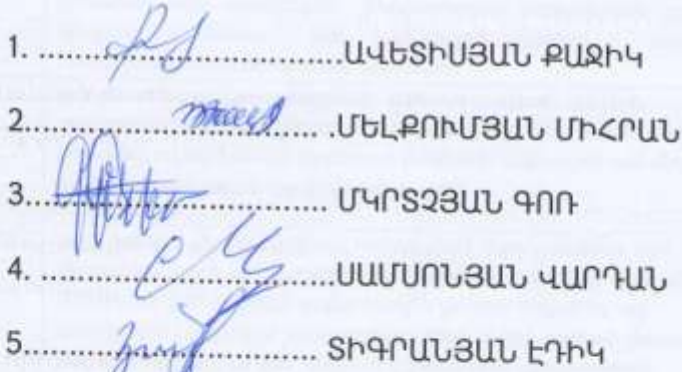 1. ..............................ԱՎԵՏԻՍՅԱՆ ՔԱՋԻԿ
2. .............................. ՄԵԼՔՈՒՄՅԱՆ ՄԻՀՐԱՆ
3............................... ՄԿՐՏՉՅԱՆ ԳՈՌ
4. ..............................ՍԱՄՍՈՆՅԱՆ ՎԱՐԴԱՆ
5............................... ՏԻԳՐԱՆՅԱՆ ԷԴԻԿ